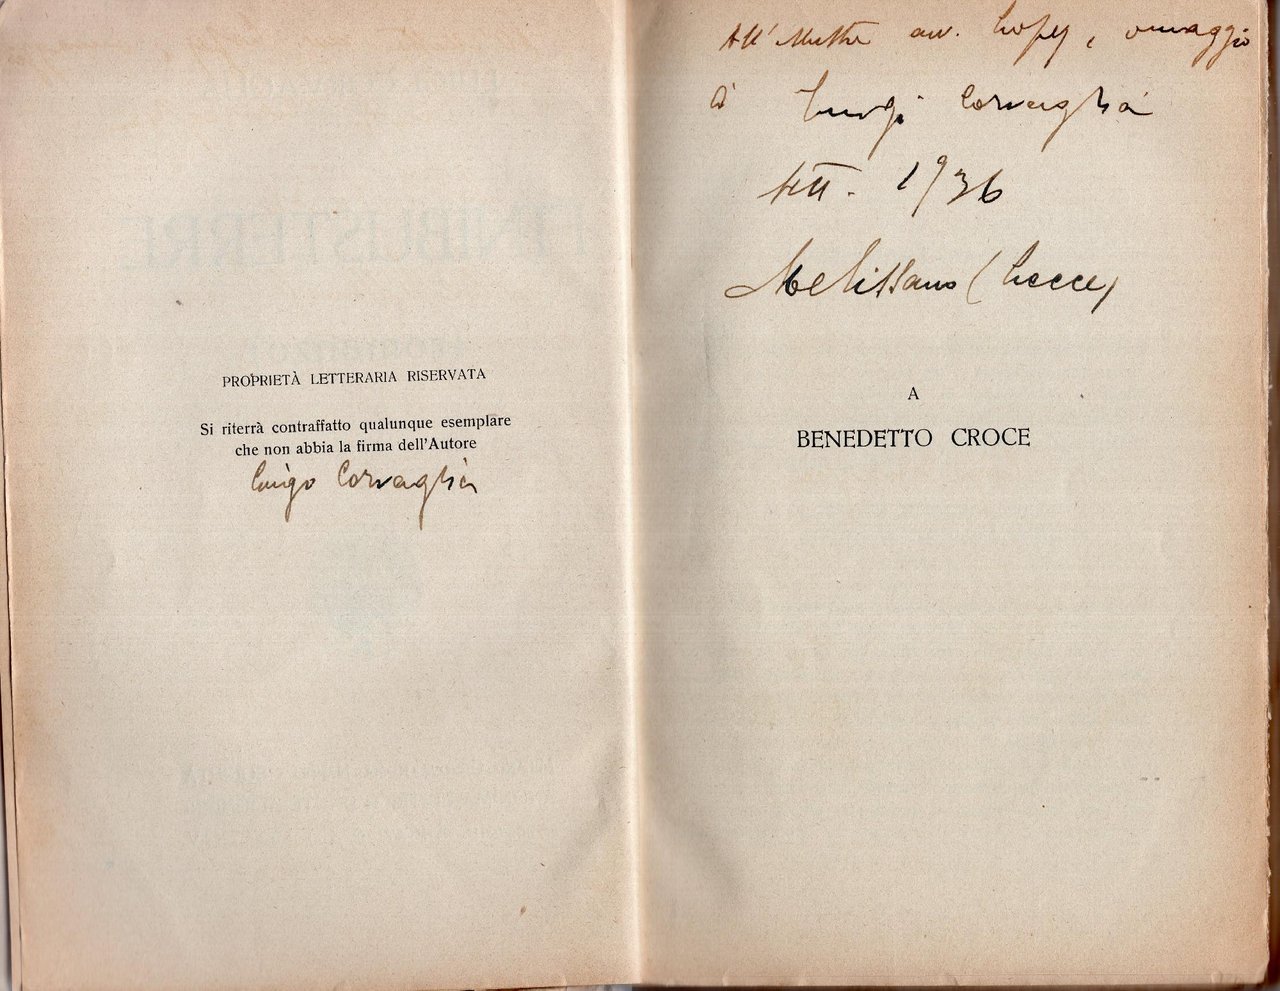 PROPRIETÀ LETTERARIA RISERVATA
Si riterrà contraffatto qualunque esemplare
che non abbia la firma dell'Autore
Luigi Corvaglia
All' av. omaggio
di Luigi Corvaglia
sett. 1936
Melissano (Lecce)
A
BENEDETTO CROCE
FINIBUSTERRE